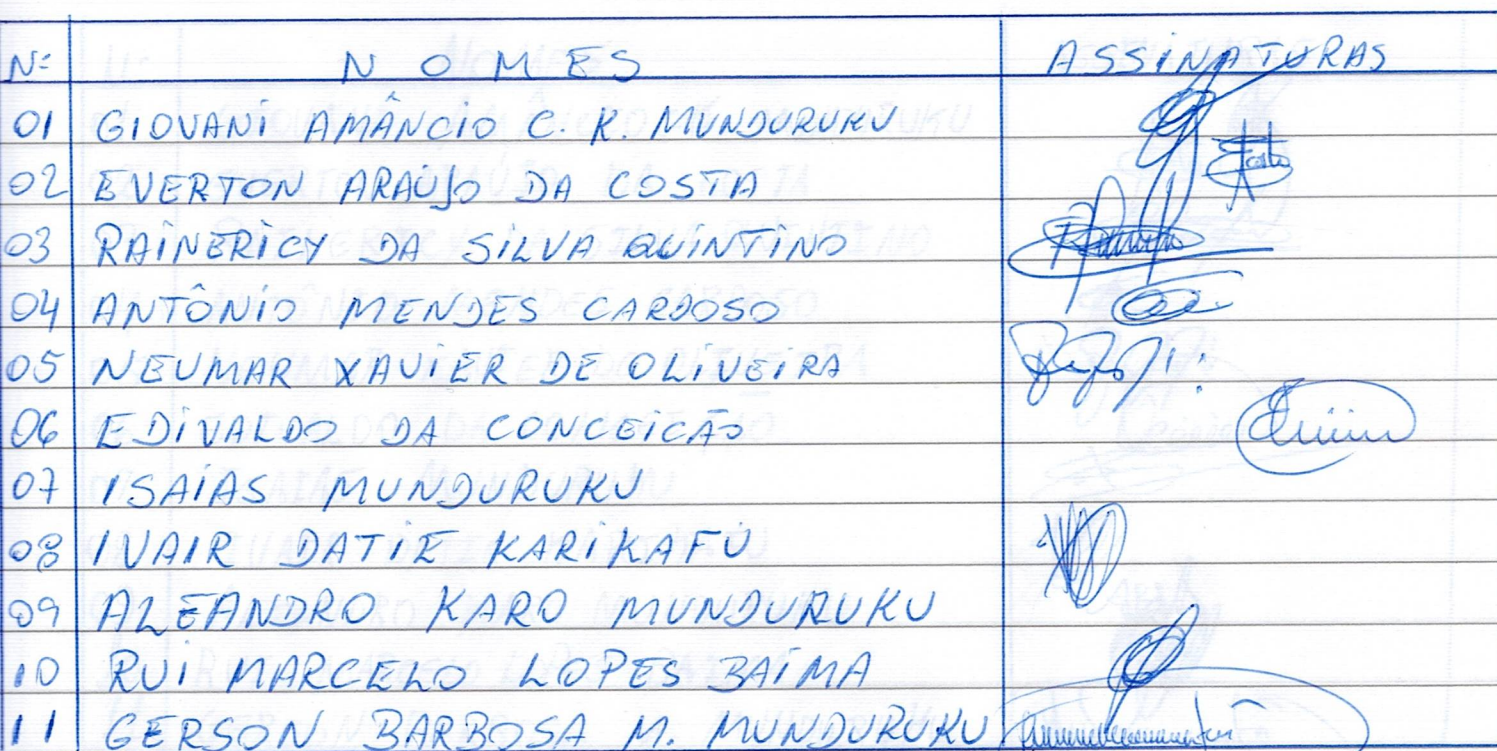 Nº NOMES ASSINATURAS
01 GIOVANI AMÂNCIO C. K. MUNDURUKU
02 EVERTON ARAÚJO DA COSTA
03 RAINERICY DA SILVA QUINTINO
04 ANTÔNIO MENDES CARDOSO
05 NEUMAR XAVIER DE OLIVEIRA
06 EDIVALDO DA CONCEICÃO
07 ISAIAS MUNDURUKU
08 IVAIR DATIE KARIKAFÚ
09 ALEANDRO KARO MUNDURUKU
10 RUI MARCELO LOPES BAIMA
11 GERSON BARBOSA M. MUNDURUKU